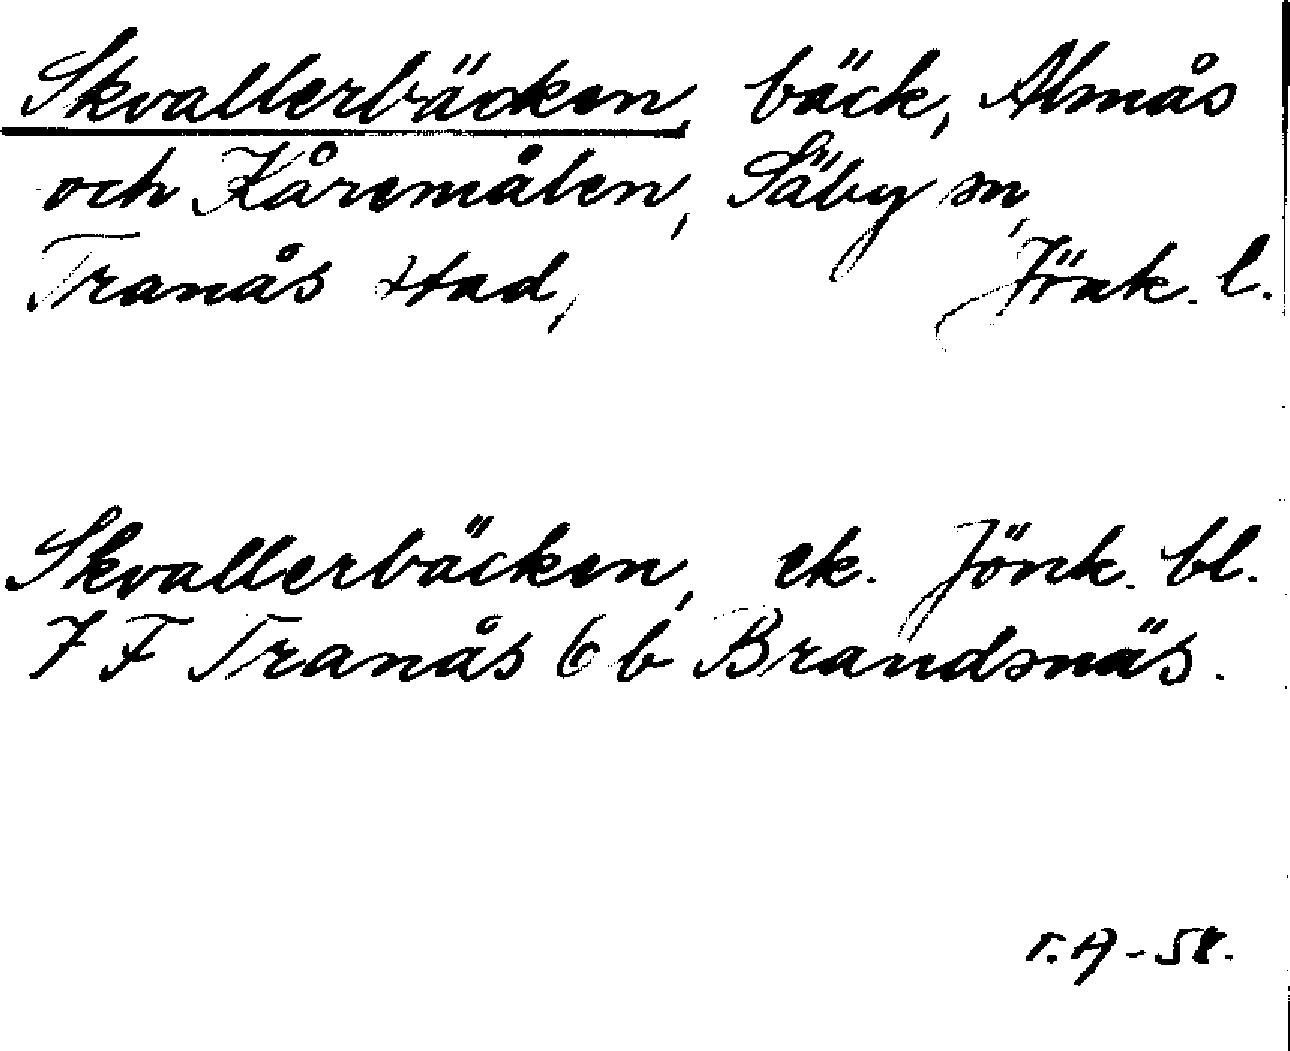 Skvallerbäcken, bäck, Almås
och Kåremålen, Säby sn,
Tranås stad, Jönk. l.
Skvallerbäcken, ek. Jönk. bl.
7 F Tranås 6 b Brandsnäs.
r. A - 58.